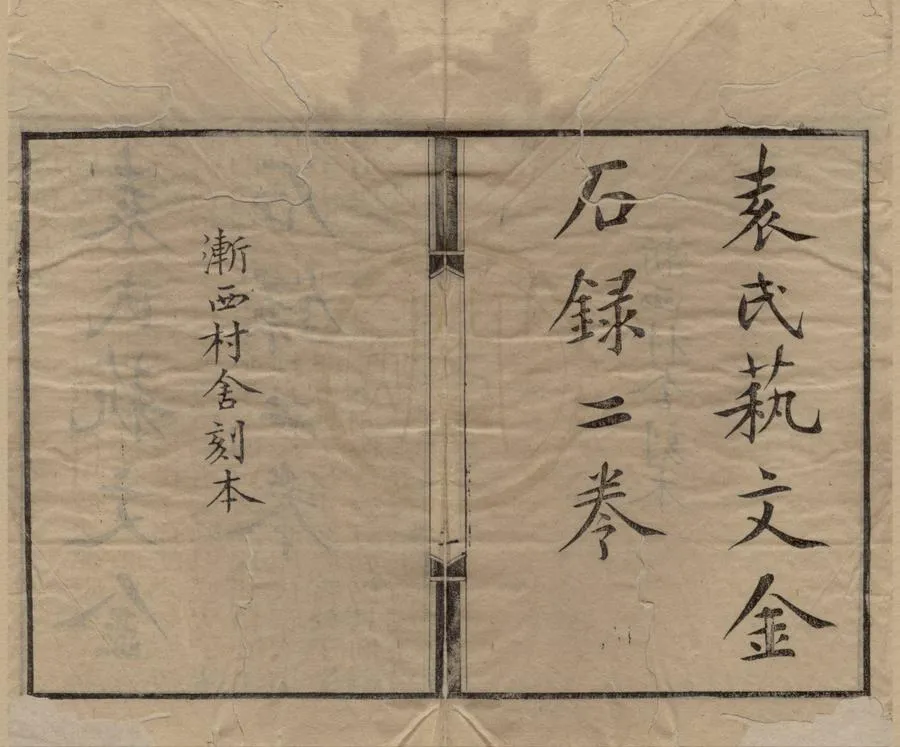 袁氏蓺文金
石録二卷
漸西村舍刻本
一